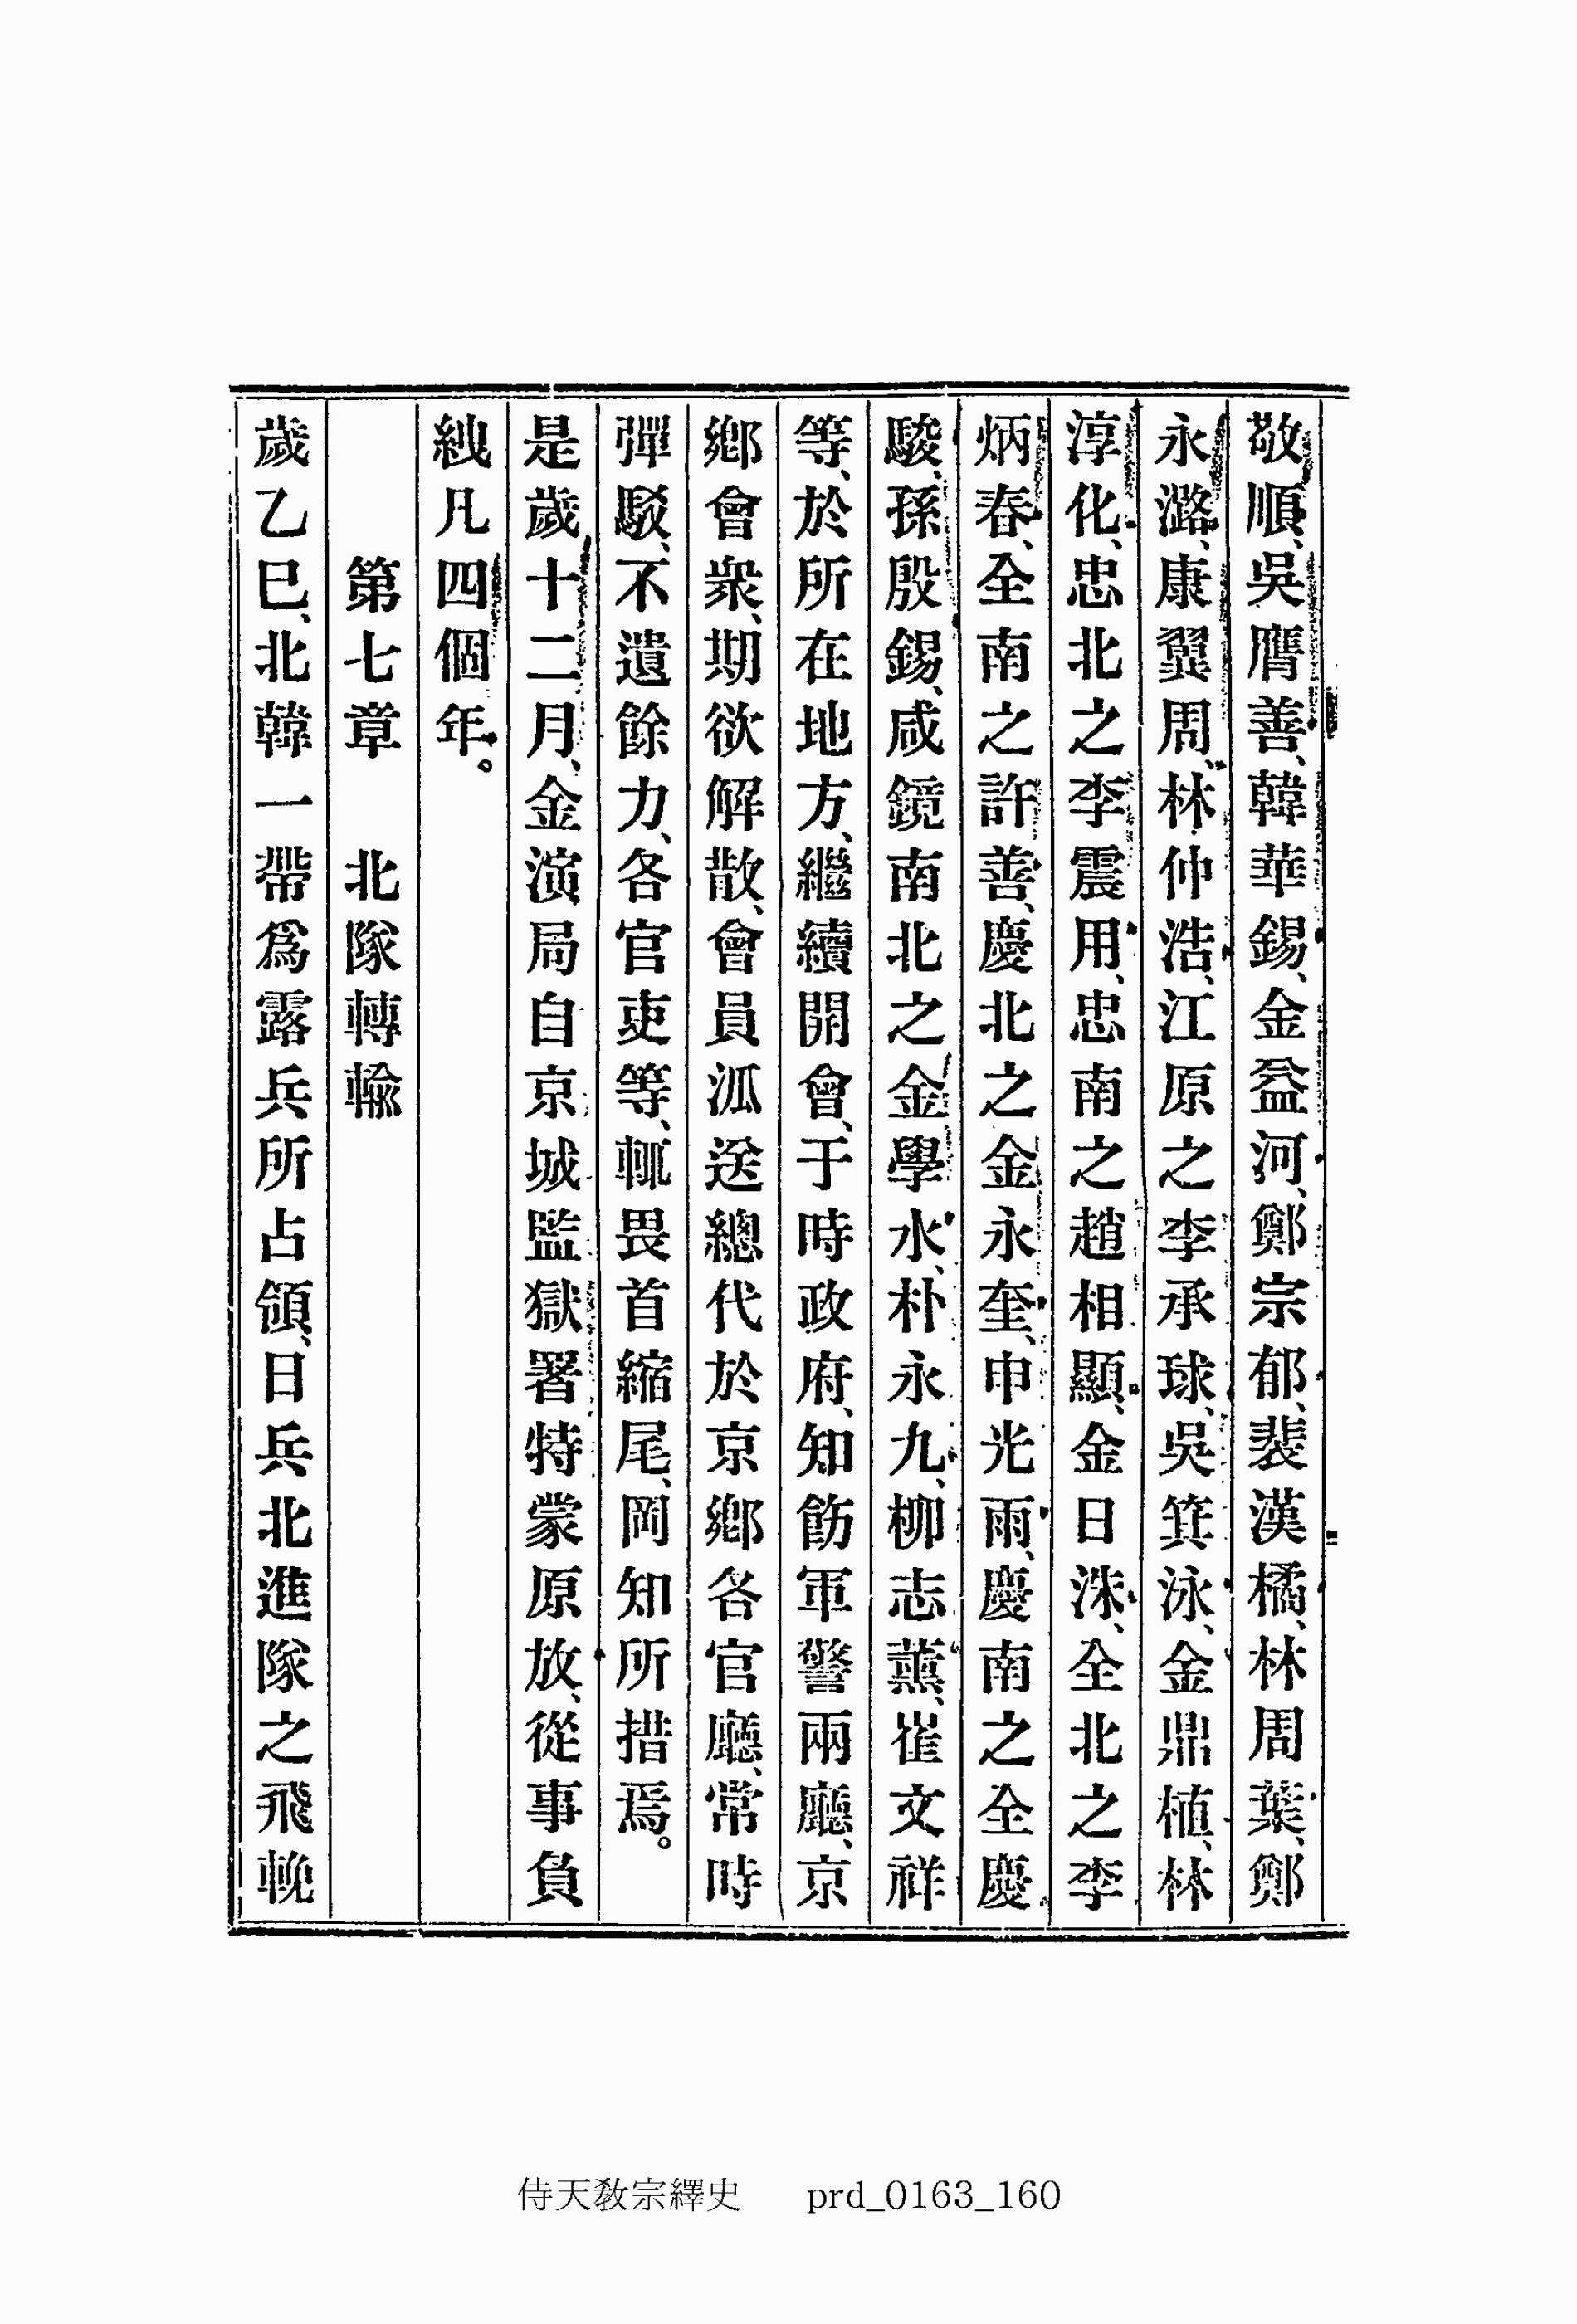 敬順、吳膺善、韓華錫、金益河、鄭宗郁、裴漢橘、林周葉、鄭
永潞、康翼周、林仲浩、江原之李承球、吳箕泳、金鼎植、林
淳化、忠北之李震用、忠南之趙相顯、金日洙、全北之李
炳春、全南之許善、慶北之金永奎、申光雨、慶南之全慶
駿、孫殷錫、咸鏡南北之金學水、朴永九、柳志薰、崔文祥
等、於所在地方、繼續開會、于時政府、知飭軍警兩廳、京
鄉會衆、期欲解散、會員派送總代於京鄉各官廳、常時
彈駁、不遺餘力、各官吏等、輒畏首縮尾、罔知所措焉。
是歲十二月、金演局自京城監獄署特蒙原放、從事負
絏凡四個年。
第七章 北隊轉輸
歲乙巳、北韓一帶爲露兵所占領、日兵北進隊之飛輓
侍天教宗繹史 prd_0163_160